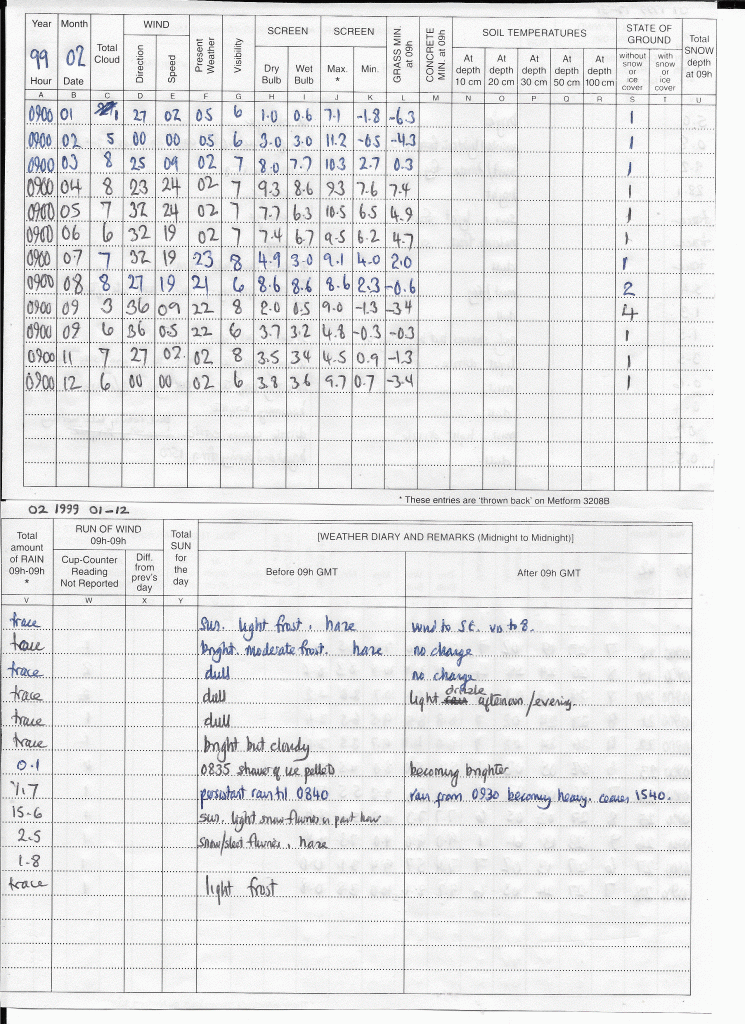 Year Month Total Cloud WIND Present Weather Visibility SCREEN SCREEN GRASS MIN. at 09h CONCRETE MIN. at 09h SOIL TEMPERATURES STATE OF GROUND Total SNOW depth at 09h
99 02 Direction Speed Dry Bulb Wet Bulb Max. * Min. At depth 10 cm At depth 20 cm At depth 30 cm At depth 50 cm At depth 100 cm without snow or ice cover with snow or ice cover
Hour Date
A B C D E F G H I J K L M N O P Q R S T U
0900 01 1 27 02 05 6 1.0 0.6 7.1 -1.8 -6.3 1
0900 02 5 00 00 05 6 3.0 3.0 11.2 -0.5 -4.3 1
0900 03 8 25 09 02 7 8.0 7.7 10.3 2.7 0.3 1
0900 04 8 23 24 02 7 9.3 8.6 93 7.6 7.4 1
0900 05 7 32 24 02 7 7.7 6.3 10.5 6.5 4.9 1
0900 06 6 32 19 02 7 7.4 6.7 9.5 6.2 4.7 1
0900 07 7 32 19 23 8 4.9 3.0 9.1 4.0 2.0 1
0900 08 8 27 19 21 6 8.6 8.6 8.6 2.3 -0.6 2
0900 09 3 36 09 22 8 2.0 0.5 9.0 -1.3 -34 4
0900 09 6 36 0.5 22 6 3.7 3.2 4.8 -0.3 -0.3 1
0900 11 7 27 02. 02 8 3.5 34 4.5 0.9 -1.3 1
0900 12 6 00 00 02 6 3.8 36 9.7 0.7 -3.4 1
* These entries are 'thrown back' on Metform 3208B
02 1999 01-12
Total amount of RAIN 09h-09h * RUN OF WIND 09h-09h Total SUN for the day [WEATHER DIARY AND REMARKS (Midnight to Midnight)]
Cup-Counter Reading Not Reported Diff. from prev's day Before 09h GMT After 09h GMT
V W X Y
trace sun. light frost. haze wind to SE. vis to 8.
trace bright. moderate frost. haze no change
trace dull no change
trace dull light drizzle afternoon/evening.
trace dull
trace bright but cloudy
0.1 0835 shower of ice pellets becoming brighter
11.7 persistant rain til 0840 rain from 0930 becoming heavy. ceases 1540.
15-6 sun. light snow flurries in past hour
2.5 snow/sleet flurries. haze
1-8
trace light frost